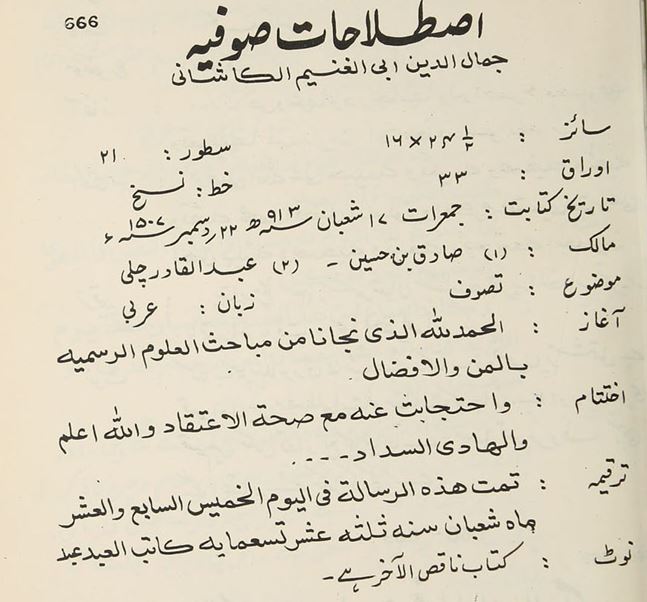 666
اصطلاحات صوفیہ
جمال الدین ابی الغنیم الکاشانی
سائز : ۲۴ ۱/۲ × ۱۶ سطور : ۲۱
اوراق : ۳۳ خط : نسخ
تاریخ کتابت : جمعرات ۱۷ شعبان سنہ ۹۱۳ھ ۲۲ دسمبر سنہ ۱۵۰۷ء
مالک : (۱) صادق بن حسین ۔ (۲) عبدالقادر چلی
موضوع : تصوف زبان : عربی
آغاز : الحمد للہ الذی نجانا من مباحث العلوم الرسمیہ
بالمن والافضال
اختتام : واحتجابت عنہ مع صحة الاعتقاد واللہ اعلم
والہادی السداد ۔ ۔ ۔ ۔
ترقیمہ : تمت ھذہ الرسالة فی الیوم الخمیس السابع والعشر
ماہ شعبان سنہ ثلثہ عشر تسعمایہ کاتب العبد عبد
نوٹ : کتاب ناقص الآخر ہے ۔